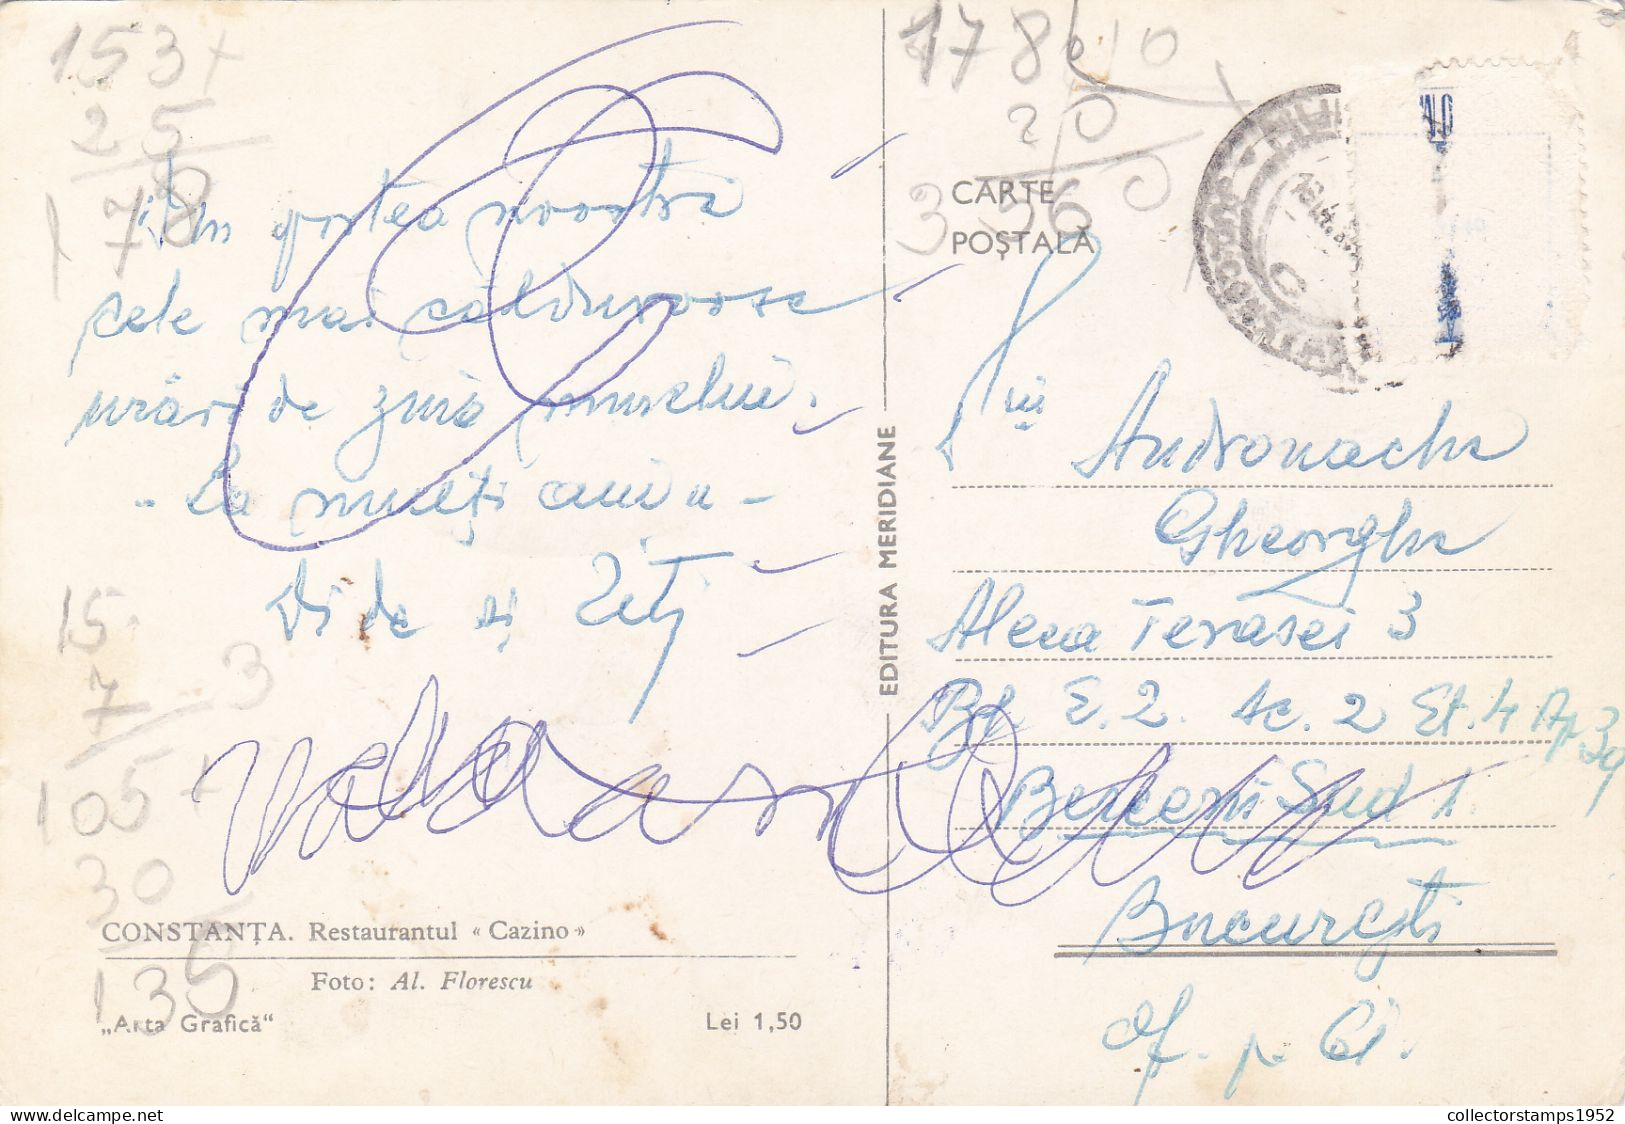 153+
25
178
Din partea noastra
cele mai călduroase
urări de ziua numelui.
„La mulți ani" -
Dide și Ziți
15
7 3
105+
30
135
CONSTANȚA. Restaurantul «Cazino»
Foto: Al. Florescu
„Arta Grafică"
Lei 1,50
EDITURA MERIDIANE
178
20
3560
CARTE
POȘTALĂ
CONSTANȚA
Andronache
Gheorghe
Aleea Terasei 3
Bl. E.2. Sc. 2 Et. 4 Ap 39
Berceni Sud 1.
București
Of. p. 61.
collectorstamps1952